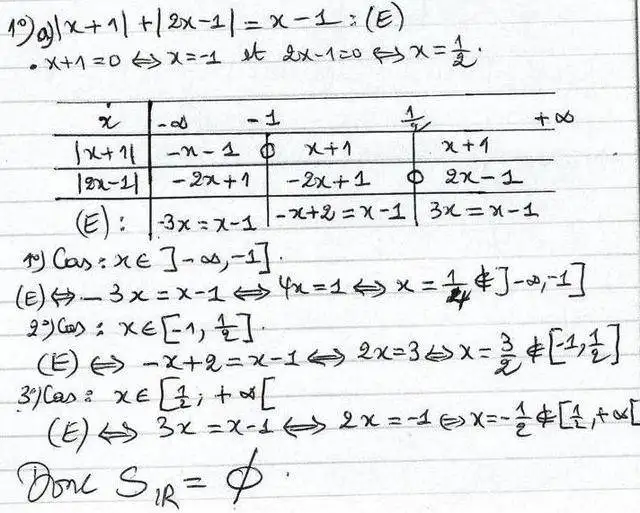 1°) a) |x+1| + |2x-1| = x-1 : (E)
• x+1=0 ⇔ x=-1 et 2x-1=0 ⇔ x=1/2.
x -∞ -1 1/2 +∞
|x+1| -x-1 0 x+1 x+1
|2x-1| -2x+1 -2x+1 0 2x-1
(E) : -3x=x-1 -x+2=x-1 3x=x-1
1°) Cas : x∈ ]-∞,-1].
(E) ⇔ -3x=x-1 ⇔ 4x=1 ⇔ x=1/4 ∉ ]-∞,-1]
2°) Cas : x∈[-1, 1/2].
(E) ⇔ -x+2=x-1 ⇔ 2x=3 ⇔ x=3/2 ∉ [-1, 1/2]
3°) Cas : x∈[1/2 ; +∞[
(E) ⇔ 3x=x-1 ⇔ 2x=-1 ⇔ x=-1/2 ∉ [1/2, +∞[
Donc S_IR = ∅.